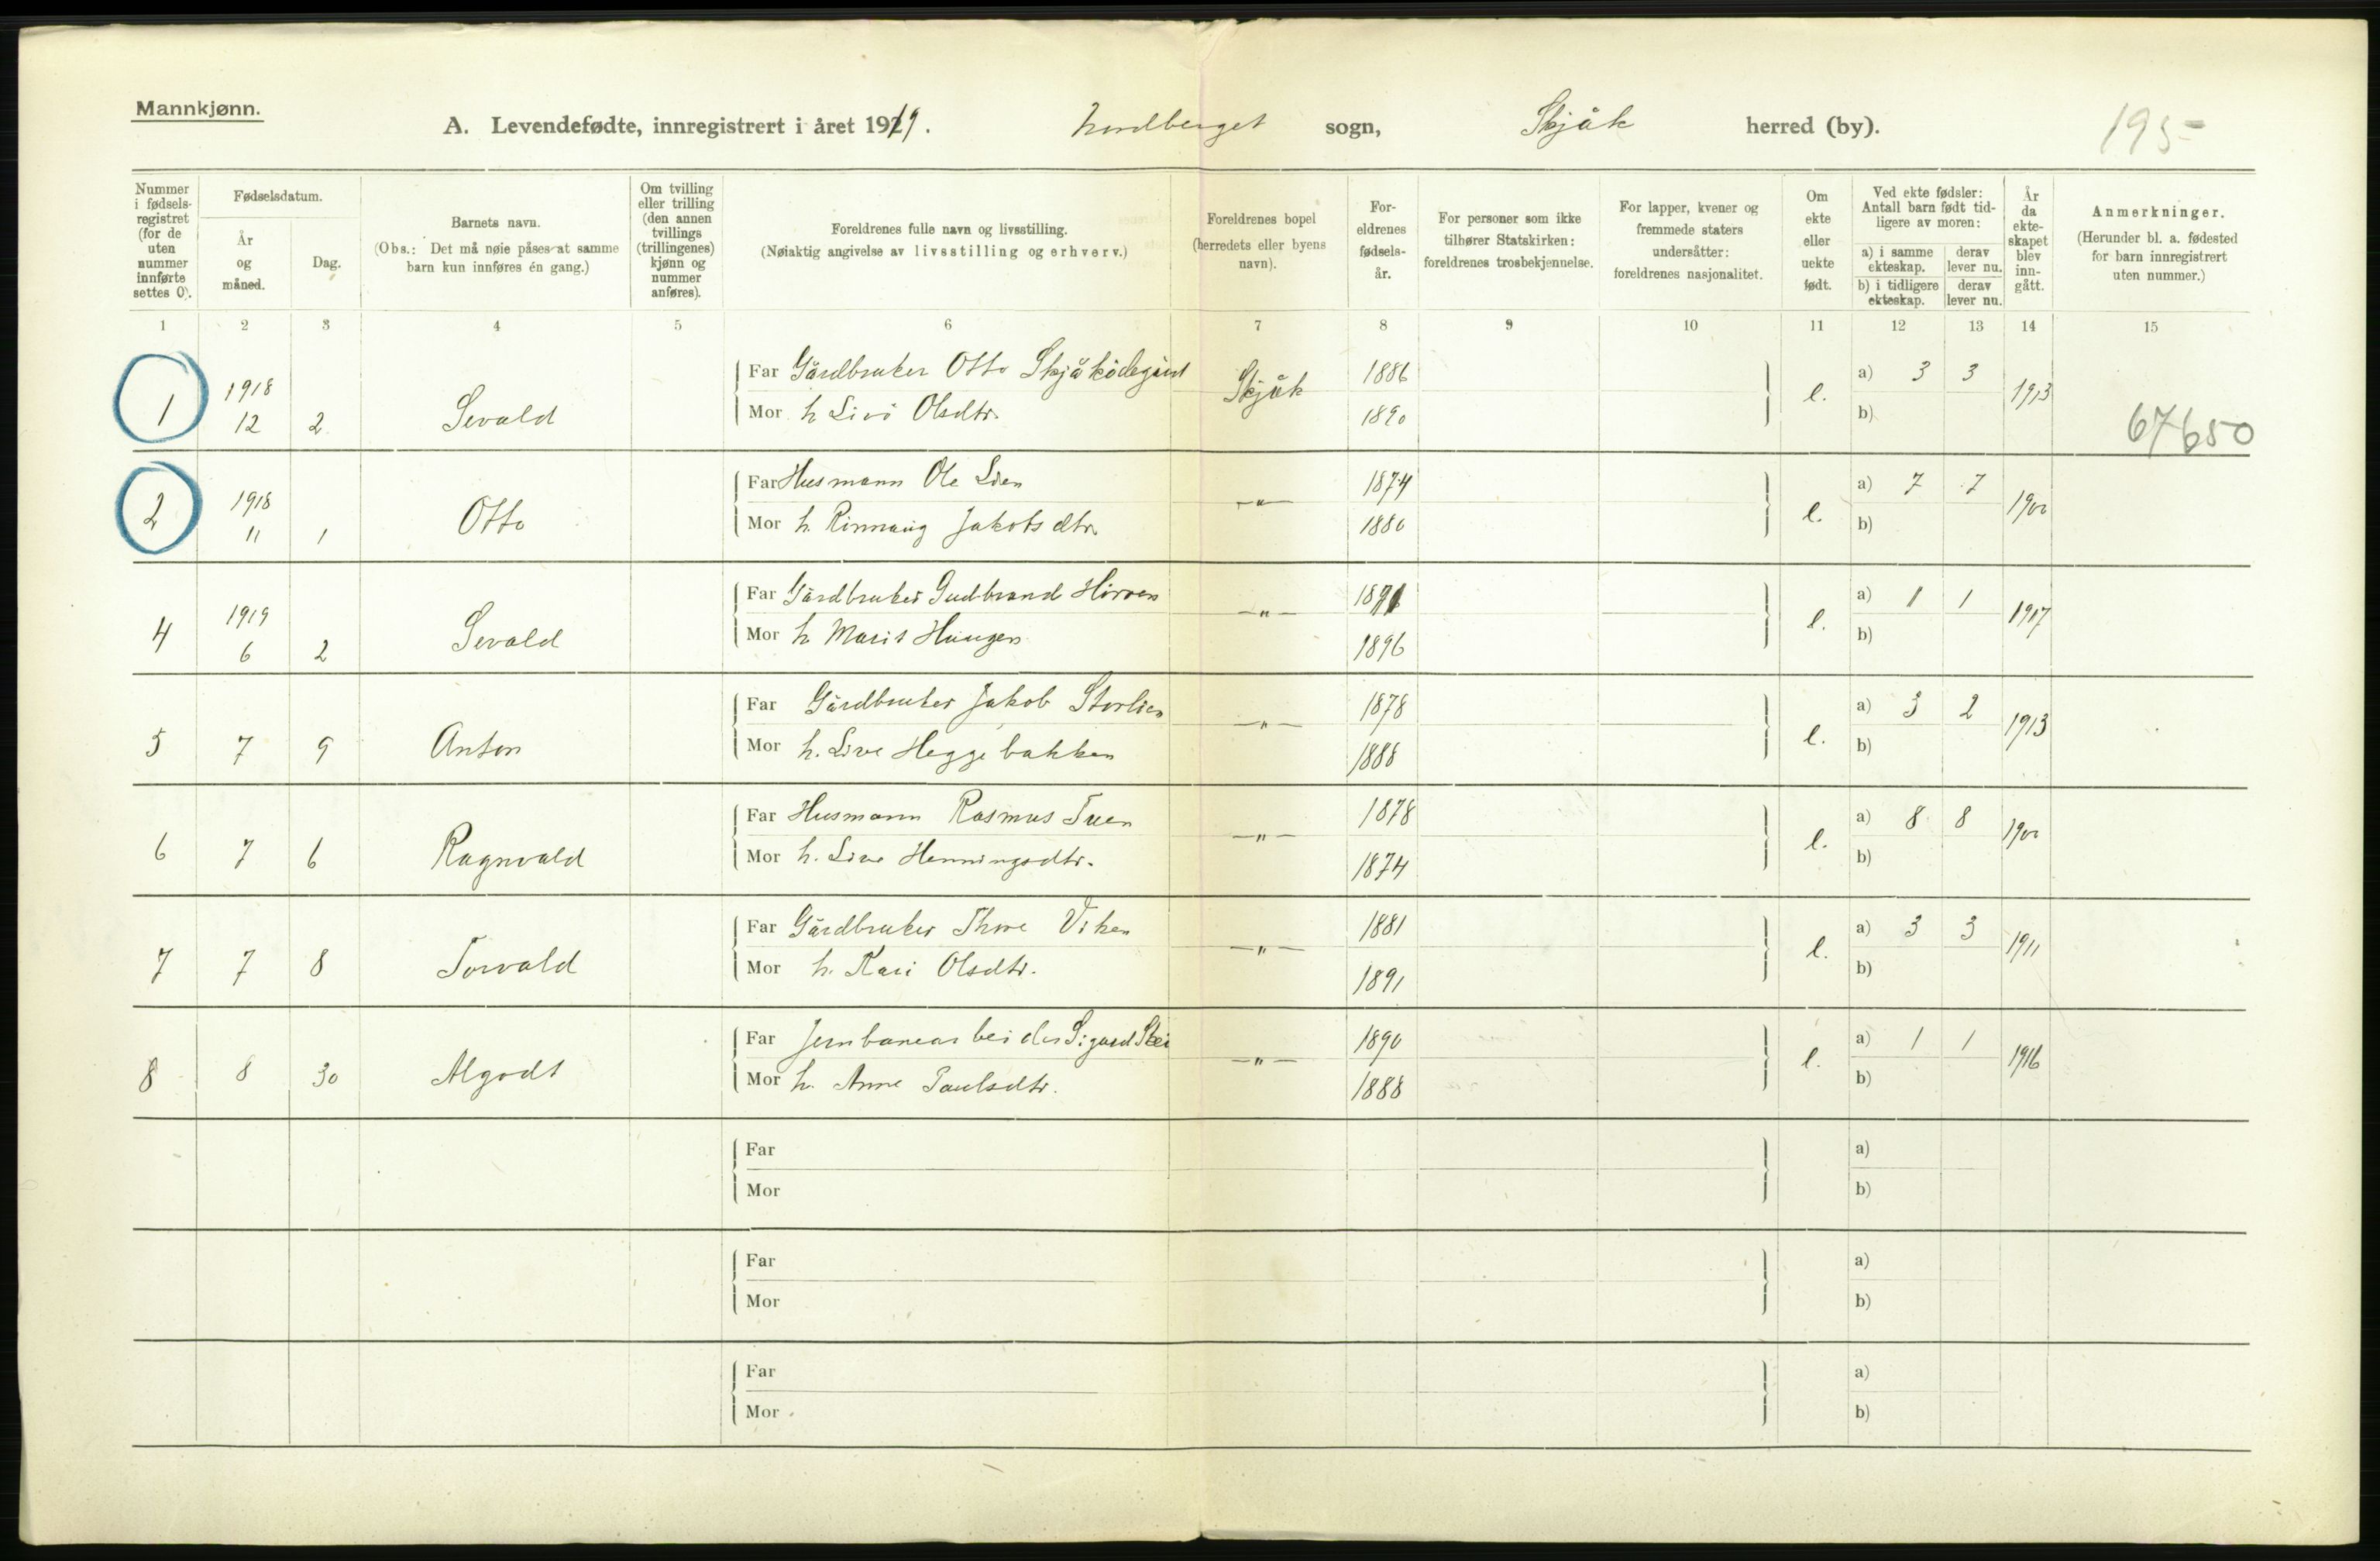 Mannkjønn.
A. Levendefødte, innregistrert i året 1919. Nordberget sogn, Skjåk herred (by). 195-
Nummer i fødselsregistret (for de uten nummer innførte settes 0).
Fødselsdatum.
År og måned.
Dag.
Barnets navn.
(Obs.: Det må nøie påses at samme barn kun innføres én gang.)
Om tvilling eller trilling (den annen tvillings (trillingenes) kjønn og nummer anføres).
Foreldrenes fulle navn og livsstilling.
(Nøiaktig angivelse av livsstilling og erhverv.)
Foreldrenes bopel (herredets eller byens navn).
Foreldrenes fødselsår.
For personer som ikke tilhører Statskirken: foreldrenes trosbekjennelse.
For lapper, kvener og fremmede staters undersåtter: foreldrenes nasjonalitet.
Om ekte eller uekte født.
Ved ekte fødsler: Antall barn født tidligere av moren:
a) i samme ekteskap. derav lever nu.
b) i tidligere ekteskap. derav lever nu.
År da ekteskapet blev inngått.
Anmerkninger.
(Herunder bl. a. fødested for barn innregistrert uten nummer.)
1 2 3 4 5 6 7 8 9 10 11 12 13 14 15
1 1918 12 2 Sevald Far Gårdbruker Otto Skjåk 1886 e. a) 3 3 1913
Mor h Livi Olsdtr. 1890 b) 67650
2 1918 11 1 Otto Far Husmann Ole Lien -"- 1874 e. a) 7 7 1900
Mor h. Rinnaug Jakobsdtr. 1880 b)
4 1919 6 2 Sevald Far Gårdbruker Gudbrand -"- e. a) 1 1 1917
Mor h Marit Haugen 1896 b)
5 7 9 Anton Far Gårdbruker Jakob Storlien -"- 1878 e. a) 3 2 1913
Mor h. Live Heggebakken 1888 b)
6 7 6 Ragnvald Far Husmann Rasmus Tuen -"- 1878 e. a) 8 8 1900
Mor h. Live Henningsdtr. 1874 b)
7 7 8 Torvald Far Gårdbruker Thore Viken -"- 1881 e. a) 3 3 1911
Mor h. Kari Olsdtr. 1891 b)
8 8 30 Algodt Far Jernbanearbeider Sigurd -"- 1890 e. a) 1 1 1916
Mor h. Anne Paulsdtr. 1888 b)
Far a)
Mor b)
Far a)
Mor b)
Far a)
Mor b)